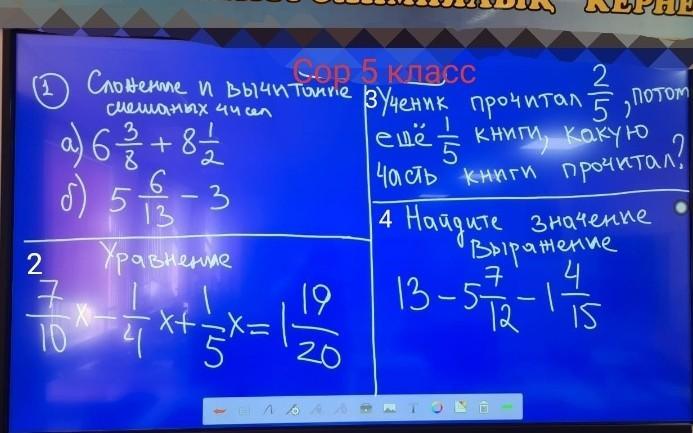 КЕРНЕ
Сор 5 класс
1 Сложение и вычитание
смешаных чисел
а) 6 3/8 + 8 1/2
б) 5 6/13 - 3
2 Уравнение
7/10 x - 1/4 x + 1/5 x = 1 19/20
3 Ученик прочитал 2/5, потом
ещё 1/5 книги, какую
часть книги прочитал?
4 Найдите значение
выражение
13 - 5 7/12 - 1 4/15